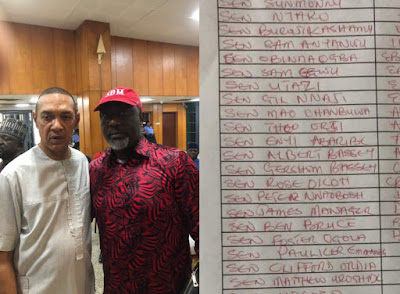 SEN SUNMONNU
SEN NTAKU
SEN BURUJI KASHAMU
SEN SAM ANYANWU
SEN OBINNA OGBA
SEN SAM EGWU
SEN UTAZI
SEN GIL NNAJI
SEN MAO OHANBUNWA
SEN THEO ORJI
SEN ENYI ABARIBE
SEN ALBERT BASSEY
SEN GERSHOM BASSEY
SEN ROSE OKOTI
SEN PETER NWAOBOSHI
SEN JAMES MANAGER
SEN BEN BRUCE
SEN FOSTER OGOLA
SEN PAULKER
SEN CLIFFORD ORDIA
SEN MATTHEW UROGHIDE